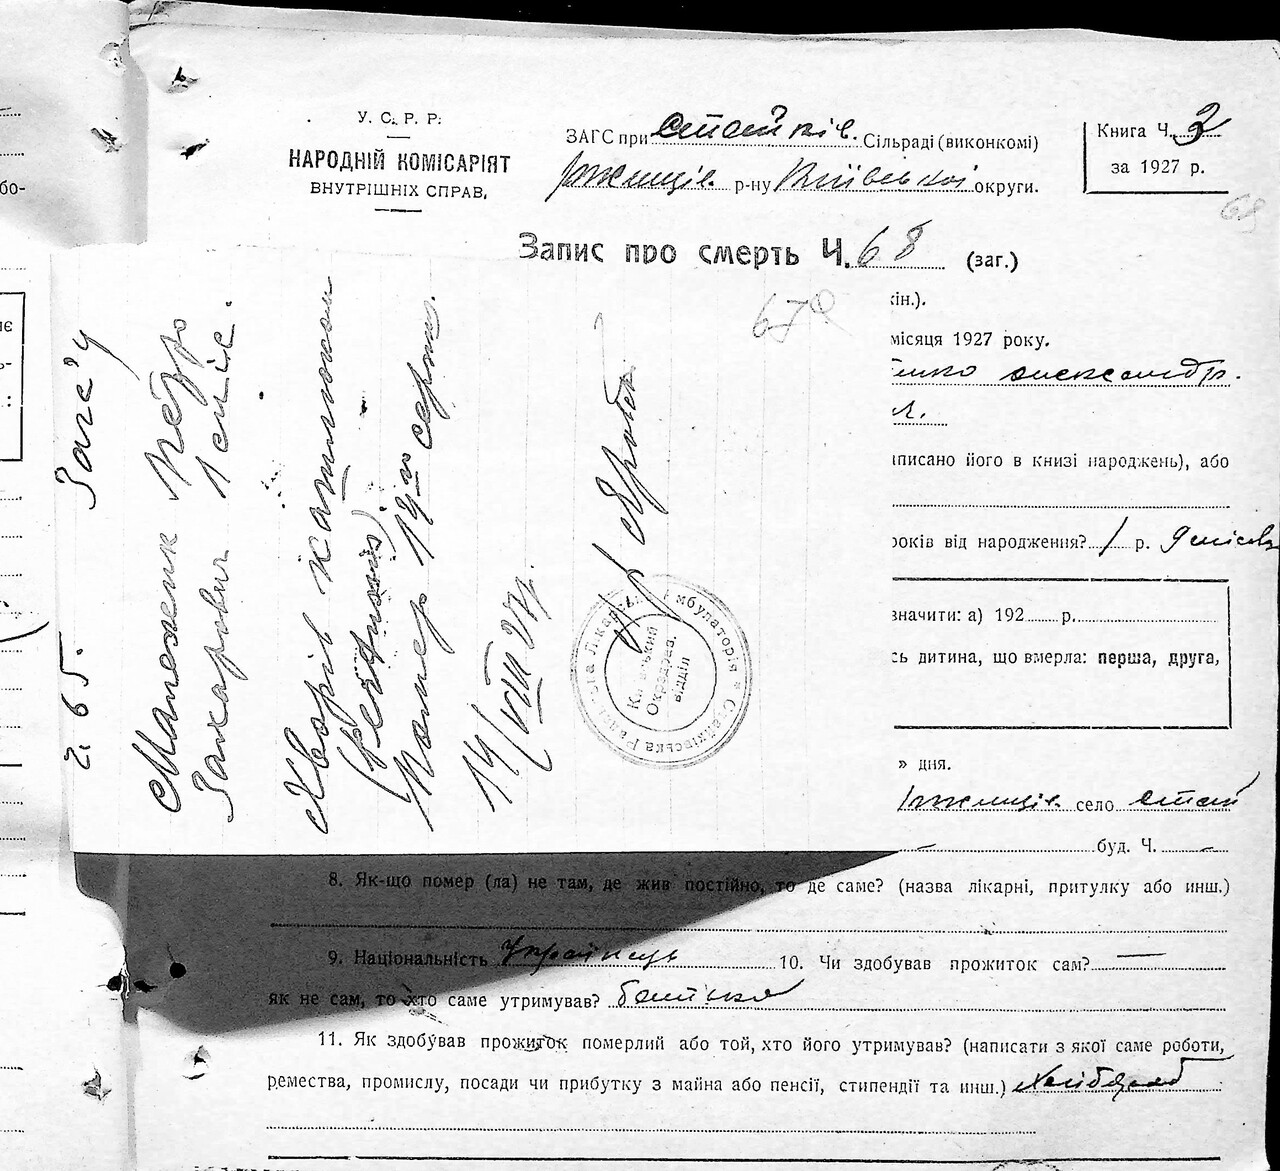 У. С. Р. Р.
НАРОДНІЙ КОМІСАРІЯТ
ВНУТРІШНІХ СПРАВ,
ЗАГС при Стайків. Сільраді (виконкомі)
Ржищів. р-ну Київської округи.
Книга Ч. 3
за 1927 р.
68
Запис про смерть Ч. 68 (заг.)
67
кін.).
місяця 1927 року.
енко Александр.
аписано його в книзі народжень), або
років від народження? 1 р. 9 місяц
значити: а) 192 р.
сь дитина, що вмерла: перша, друга,
» дня.
Ржищів. село Стай
буд. Ч.
8. Як-що помер (ла) не там, де жив постійно, то де саме? (назва лікарні, притулку або инш.)
9. Національність Українець 10. Чи здобував прожиток сам? —
як не сам, то хто саме утримував? батько
11. Як здобував прожиток померлий або той, хто його утримував? (написати з якої саме роботи,
ремества, промислу, посади чи прибутку з майна або пенсії, стипендії та инш.) хлібороб
Ч. 65. Загс'у
Петр
Захарович 1 єміс.
Хворів
Помер 14го серпн.
14/VIII 27р.
Амбулаторія * Стайківська
Київський
Окрздрав.
відділ